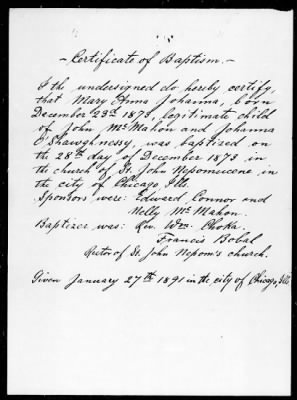 - Certificate of Baptism. -
I the undersigned do hereby certify,
that Mary Anna Johanna, born
December 23rd 1873, legitimate child
of John McMahon and Johanna
O'Shawghnessy, was baptized on
the 28th day of December 1873 in
the church of St. John Nepomucene in
the city of Chicago Ills.
Sponsors were: Edward Connor and
Nelly McMahon.
Baptizer was: Rev. Wm. Choka,
Francis Bobal
Rector of St. John Nepom's church.
Given January 27th 1891 in the city of Chicago, Ills